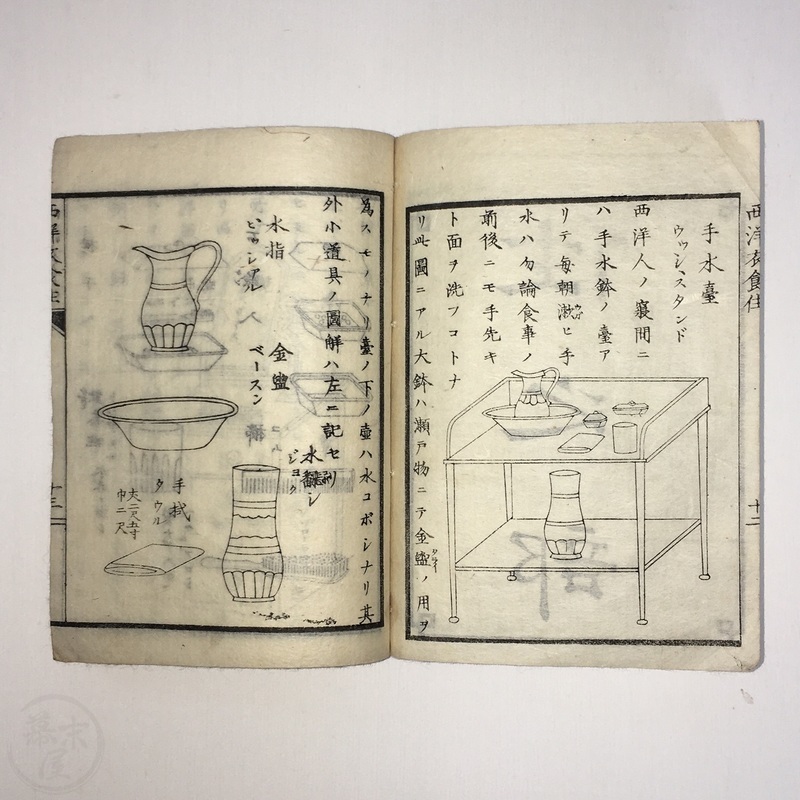 西洋衣食住
手水臺
ウヲシ、スタンド
西洋人ノ寢間ニ
ハ手水鉢ノ臺ア
リテ毎朝漱ヒ手
水ハ勿論食事ノ
前後ニモ手先キ
ト面ヲ洗フコトナ
リ此圖ニアル大鉢ハ瀬戸物ニテ金盥ノ用ヲ
十二
為スモノナリ臺ノ下ノ壺ハ水コボシナリ其
外小道具ノ圖解ハ左ニ記セリ
水指
ピッシアル
金盥
ベースン
水飜シ
ジョク
手拭
タウル
丈二尺五寸
巾二尺
西洋衣食住
十二
幕末屋